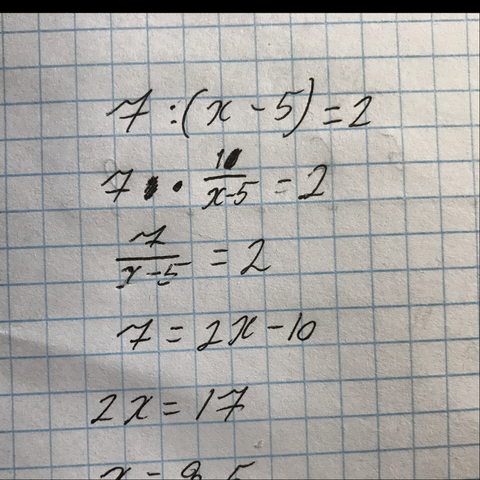 7 : (x - 5) = 2
7 · 1/(x-5) = 2
7/(x-5) = 2
7 = 2x - 10
2x = 17
x = 8,5